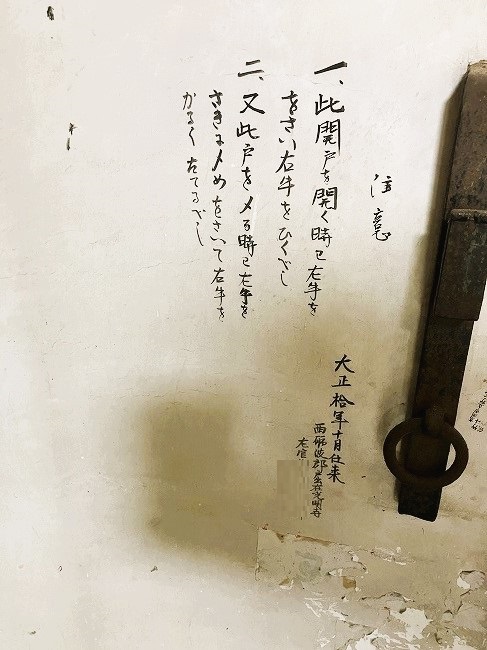 注意
一、此開戸を開く時ハ左手を
をさい右手をひくべし
二、又此戸を〆る時ハ左手を
さきに〆めをさいて右手を
かるくたてるべし
大正拾年十月仕来
西砺波郡
左官